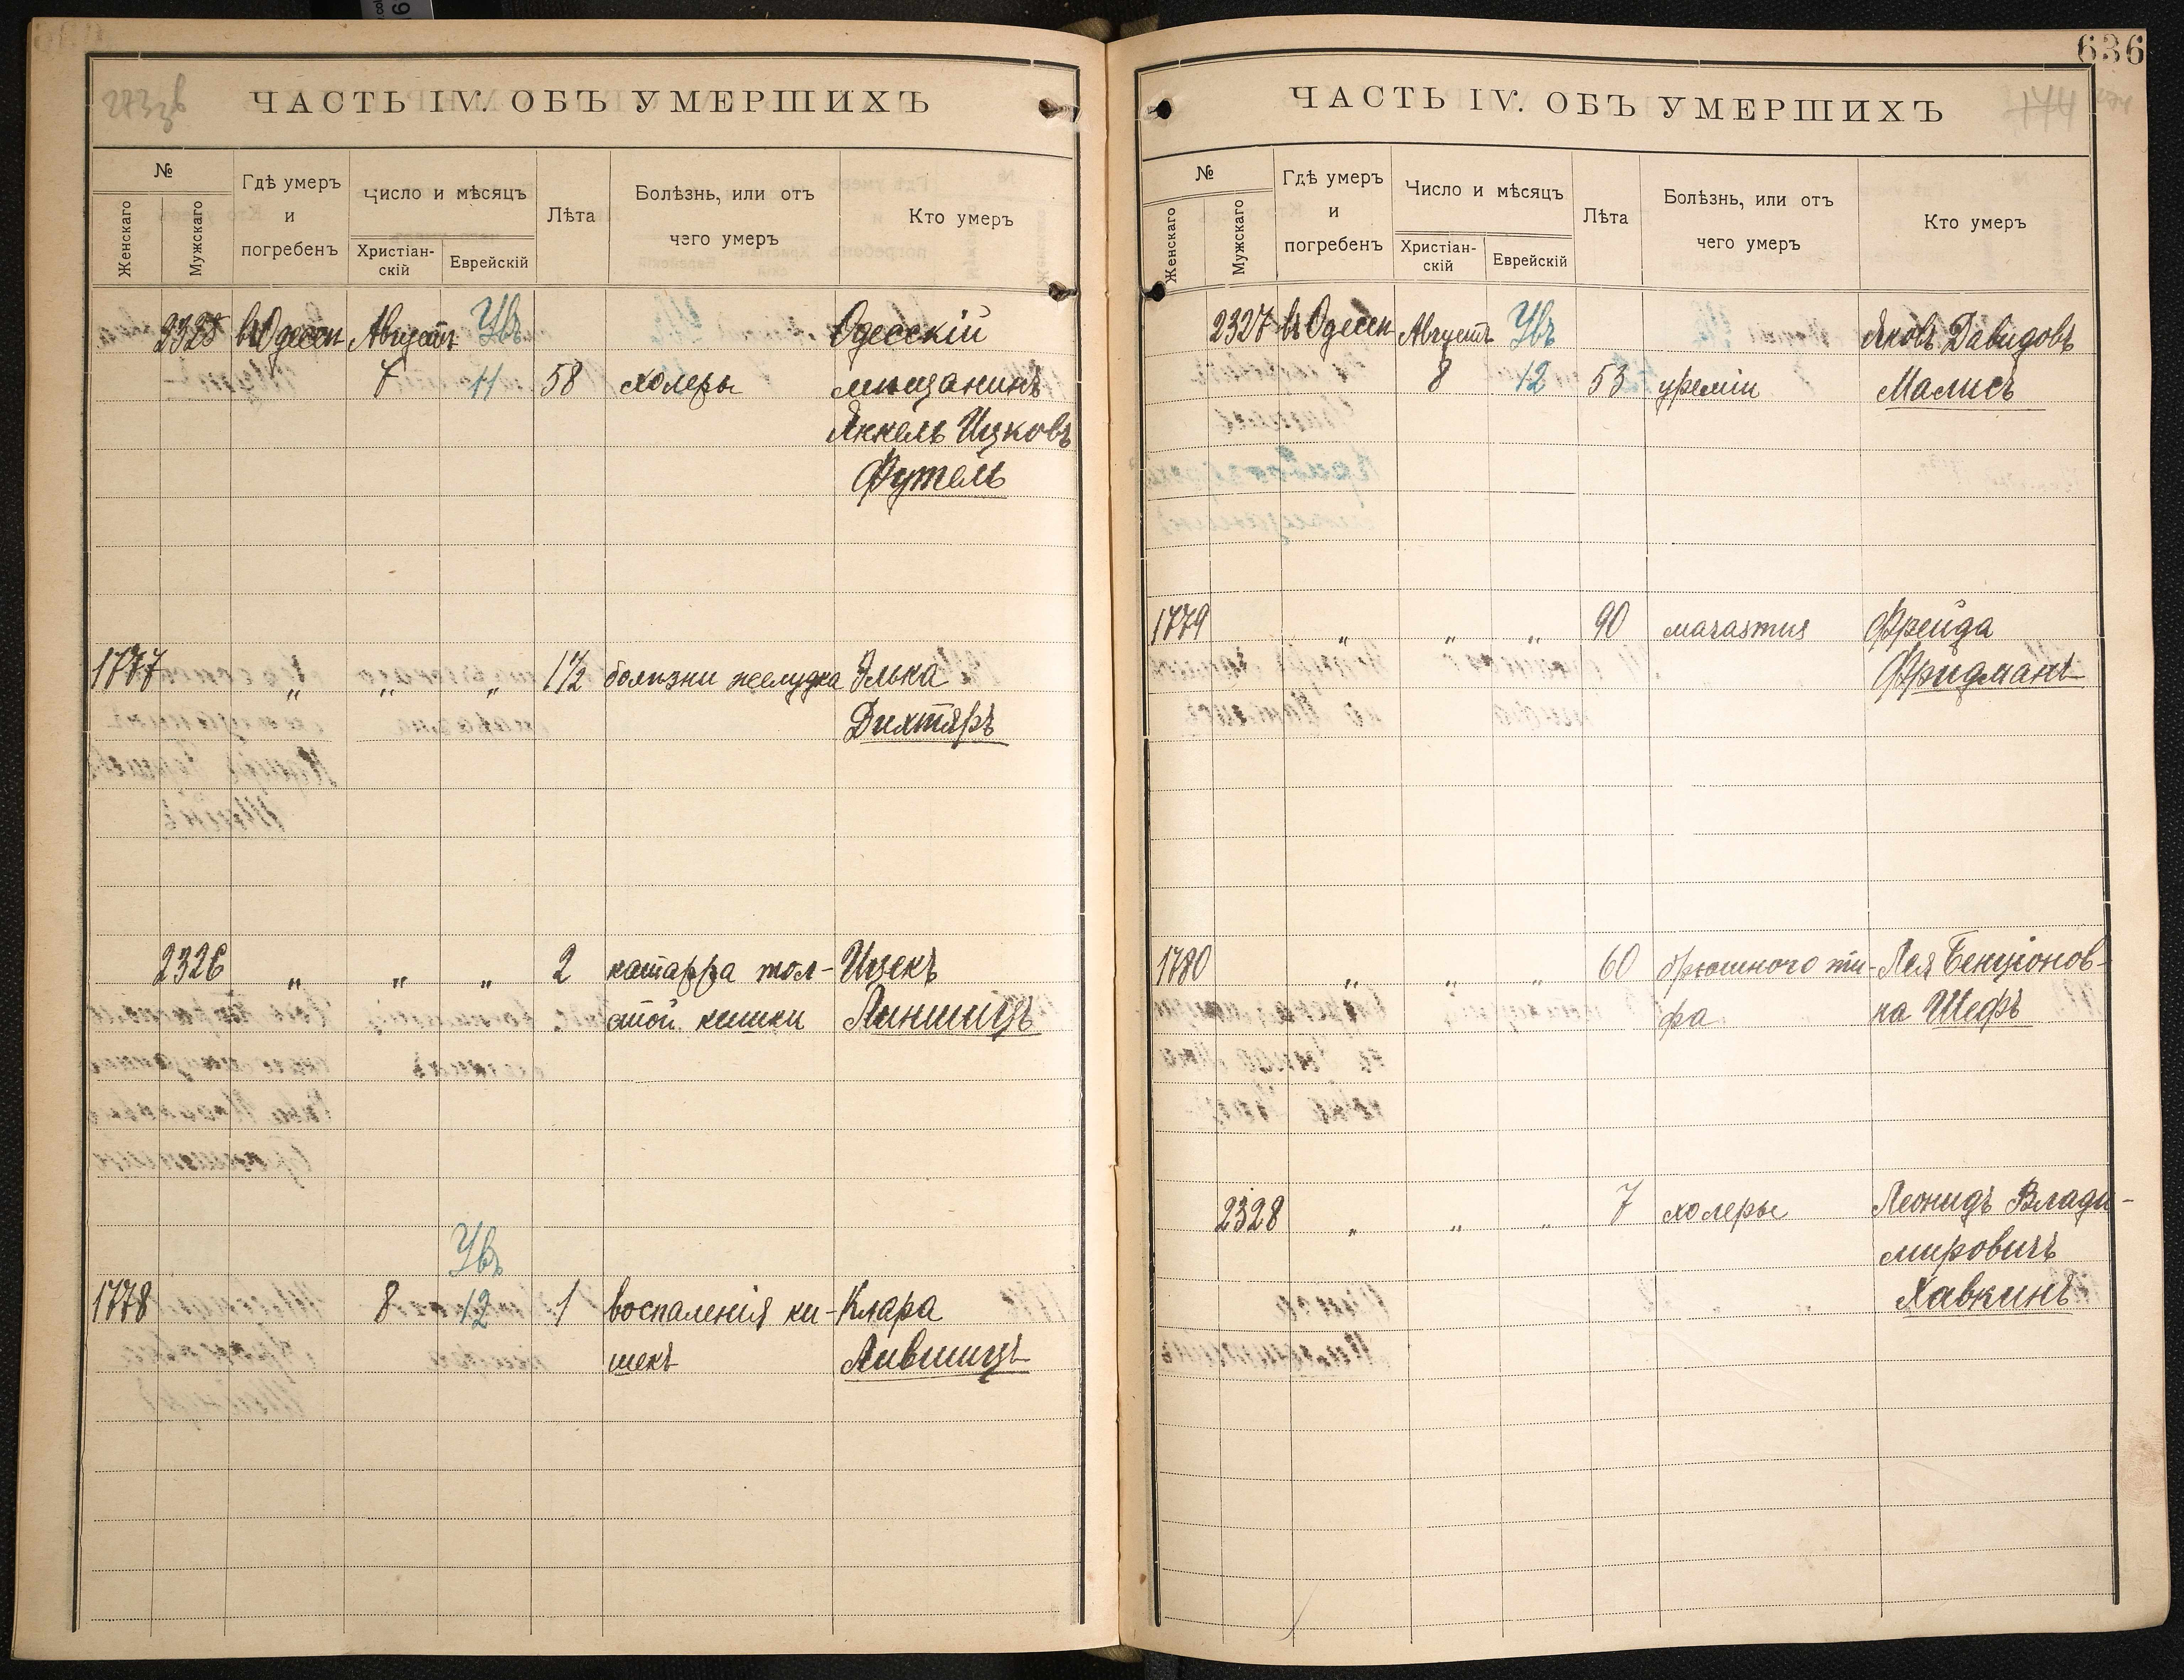 636
ЧАСТЬ IV. ОБЪ УМЕРШИХЪ
№
Женскаго
Мужскаго
Гдѣ умеръ
и
погребенъ
Число и мѣсяцъ
Христіан-
скій
Еврейскій
Лѣта
Болѣзнь, или отъ
чего умеръ
Кто умеръ
2325 въ Одессѣ Августъ Увъ Одесскій
7 11 58 холеры мѣщанинъ
Янкель Ицковъ
Футель
1777 „ „ „ 1½ болѣзни желудка Элька
Дихтяръ
2326 „ „ „ 2 катарра тол- Ицекъ
стой кишки Линшицъ
Увъ
1778 8 12 1 воспаленія ки- Клара
шекъ Лившицъ
ЧАСТЬ IV. ОБЪ УМЕРШИХЪ
174
№
Женскаго
Мужскаго
Гдѣ умеръ
и
погребенъ
Число и мѣсяцъ
Христіан-
скій
Еврейскій
Лѣта
Болѣзнь, или отъ
чего умеръ
Кто умеръ
2327 въ Одессѣ Августъ Увъ Яковъ Давидовъ
8 12 53 уреміи Малисъ
1779 „ „ „ 90 marasmus Фрейда
Фридманъ
1780 „ „ „ 60 брюшного ти- Лея Бенціонов-
фа на Шефъ
2328 „ „ „ 7 холеры Леонидъ Влади-
мировичъ
Хавкинъ